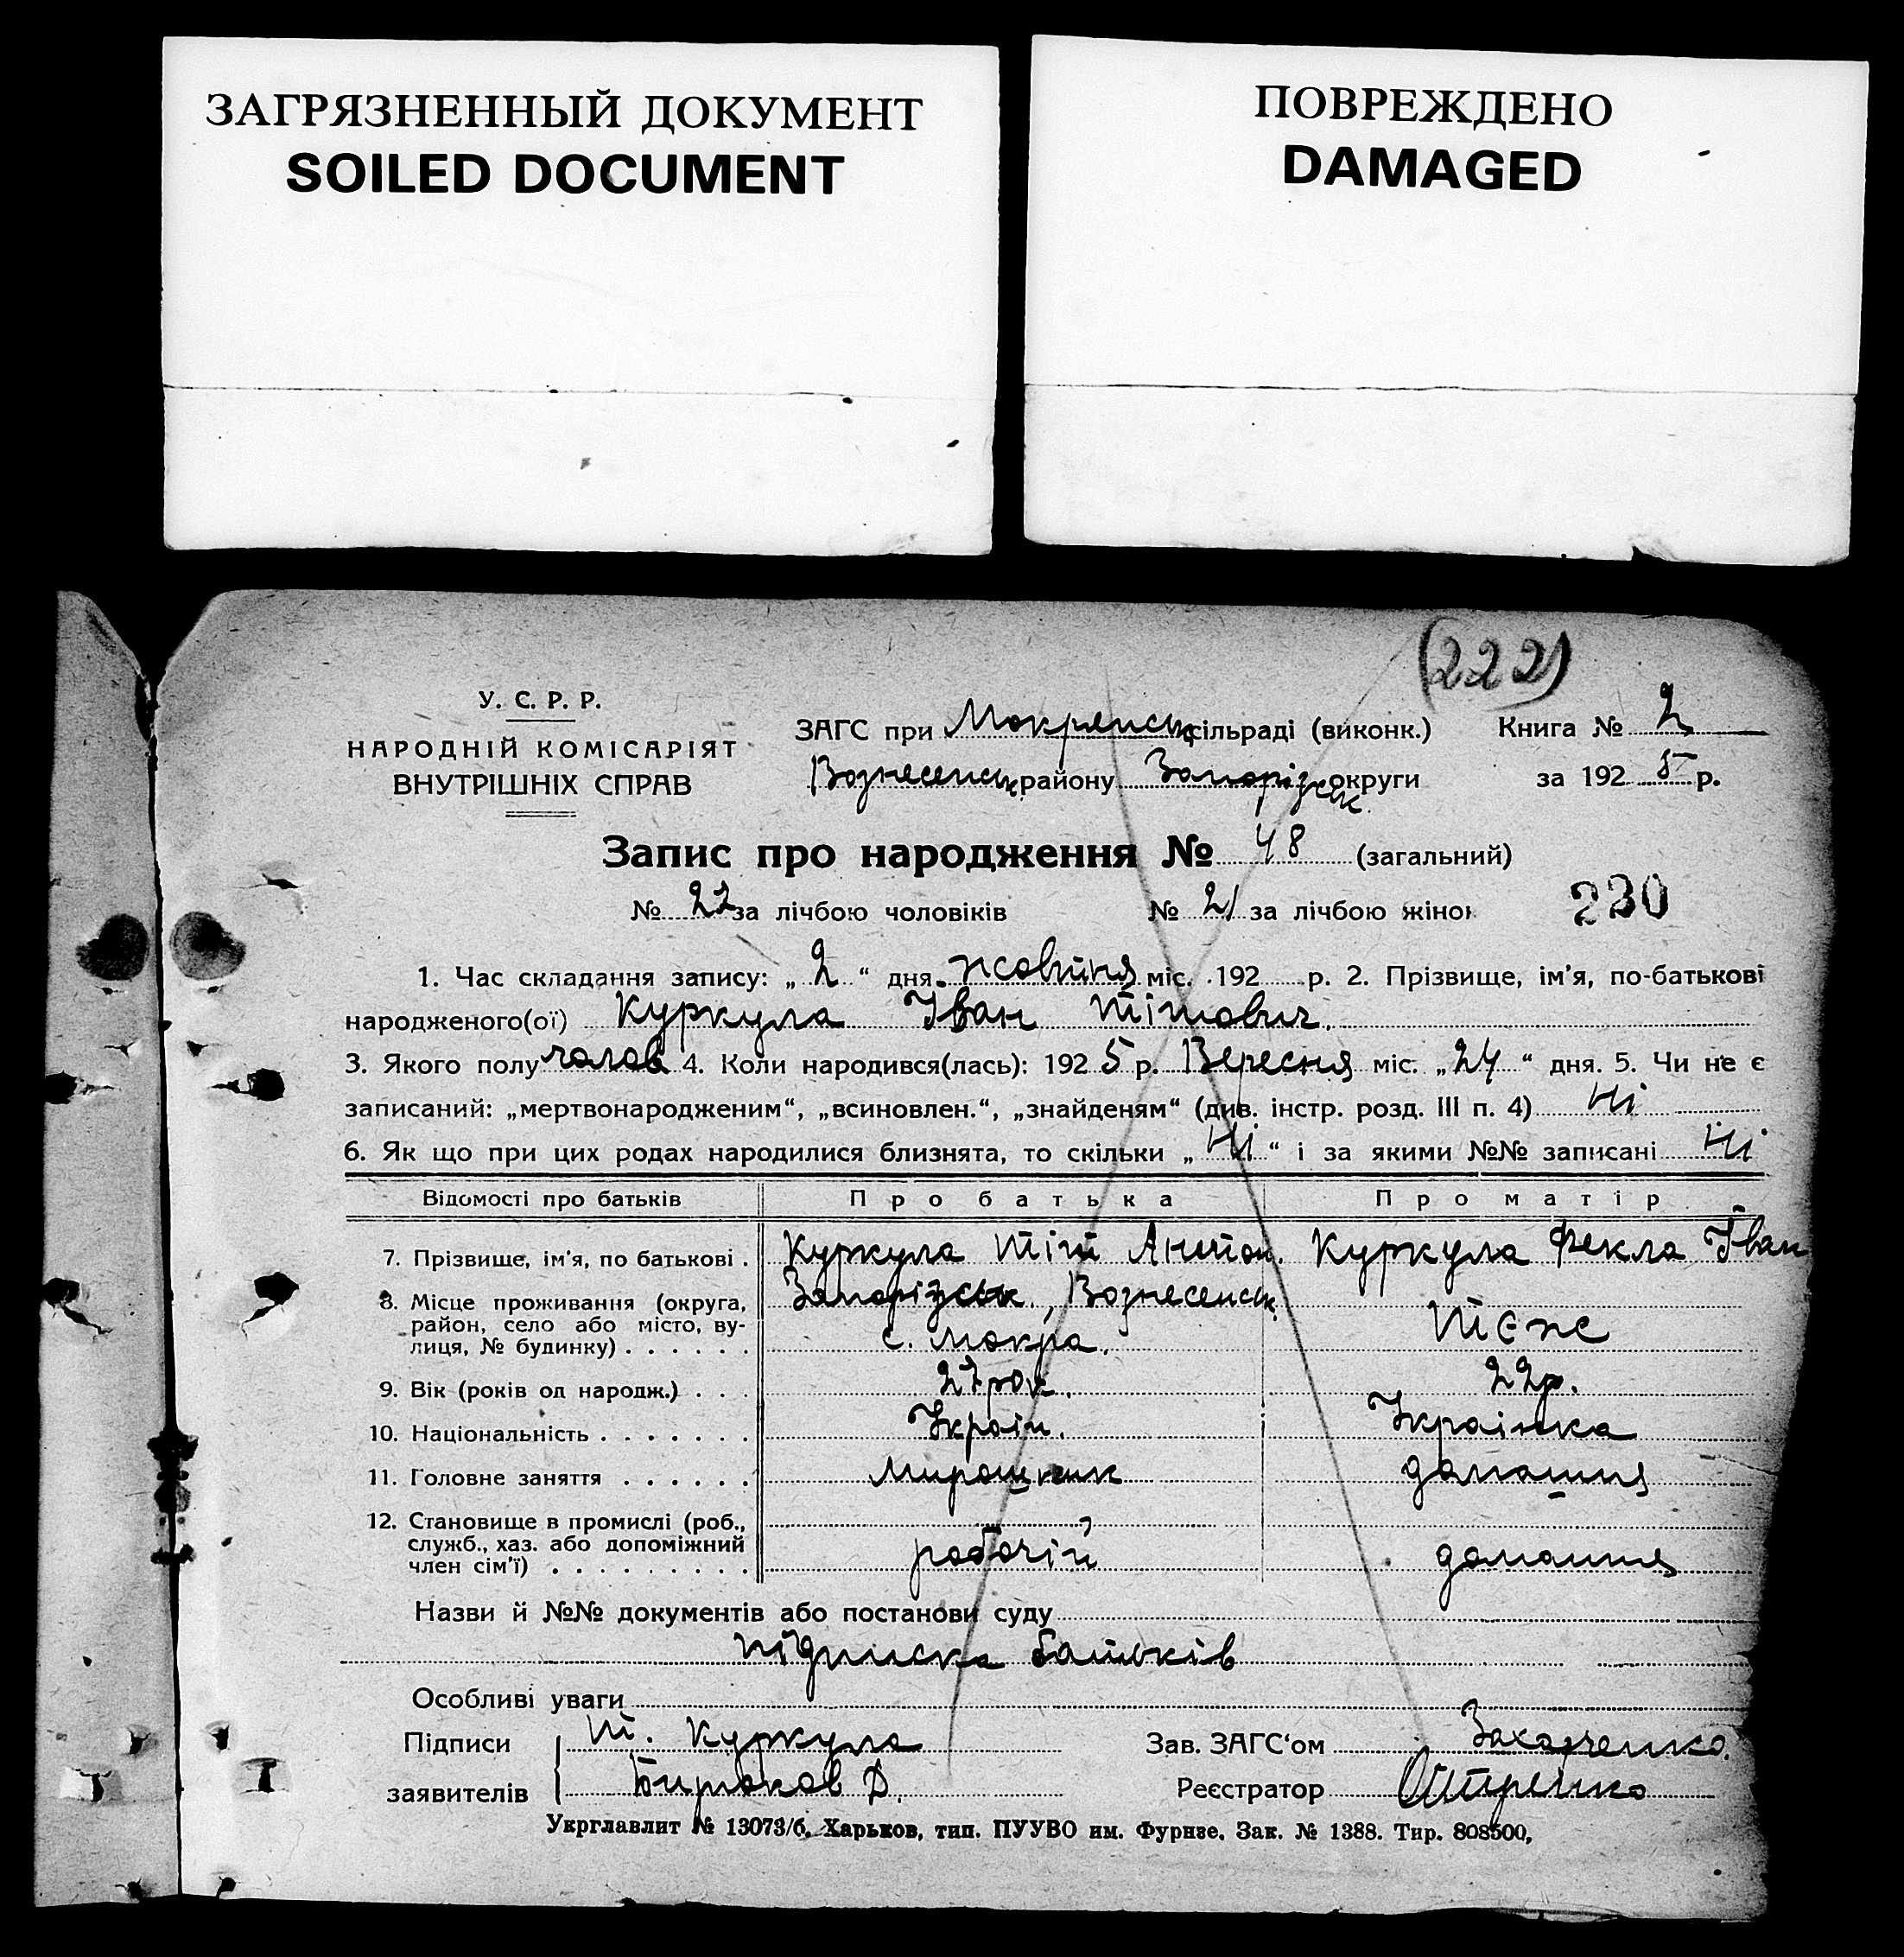 ЗАГРЯЗНЕННЫЙ ДОКУМЕНТ
SOILED DOCUMENT
ПОВРЕЖДЕНО
DAMAGED
(222)
У. С. Р. Р.
НАРОДНІЙ КОМІСАРІЯТ
ВНУТРІШНІХ СПРАВ
ЗАГС при Мокрянськ сільраді (виконк.) Книга № 2
Вознесенськ району Запорізськ округи за 192 5 р.
Запис про народження № 48 (загальний)
№ 27 за лічбою чоловіків № 21 за лічбою жінок
230
1. Час складання запису: „ 2 “ дня жовтня міс. 192 р. 2. Прізвище, ім'я, по-батькові
народженого(ої) Куркула Іван Тітович.
3. Якого полу чолов 4. Коли народився(лась): 192 5 р. Вересня міс. „ 24 “ дня. 5. Чи не є
записаний: „мертвонародженим“, „всиновлен.“, „знайденям“ (див. інстр. розд. III п. 4) Ні
6. Як що при цих родах народилися близнята, то скільки „ Ні “ і за якими №№ записані Ні
Відомості про батьків Про батька Про матір
7. Прізвище, ім'я, по батькові . Куркула Тіт Антон. Куркула Фекла Іван
8. Місце проживання (округа, район, село або місто, вулиця, № будинку) . . . . . . Запорізськ., Вознесенськ
с. Мокра. Тєж
9. Вік (років од народж.) . . . 27 рок. 22 р.
10. Національність . . . . . . . Україн. Українка
11. Головне заняття . . . . . . Мирошник домашня
12. Становище в промислі (роб., служб., хаз. або допоміжний член сім'ї) . . . . . . . . . робочій домашня
Назви й №№ документів або постанови суду
підписка батьків
Особливі уваги
Підписи Т. Куркула Зав. ЗАГС'ом Захарченко.
заявителів Бирюков Д. Реєстратор
Укрглавлит № 13073/б. Харьков, тип. ПУУВО им. Фрунзе. Зак. № 1388. Тир. 808500,